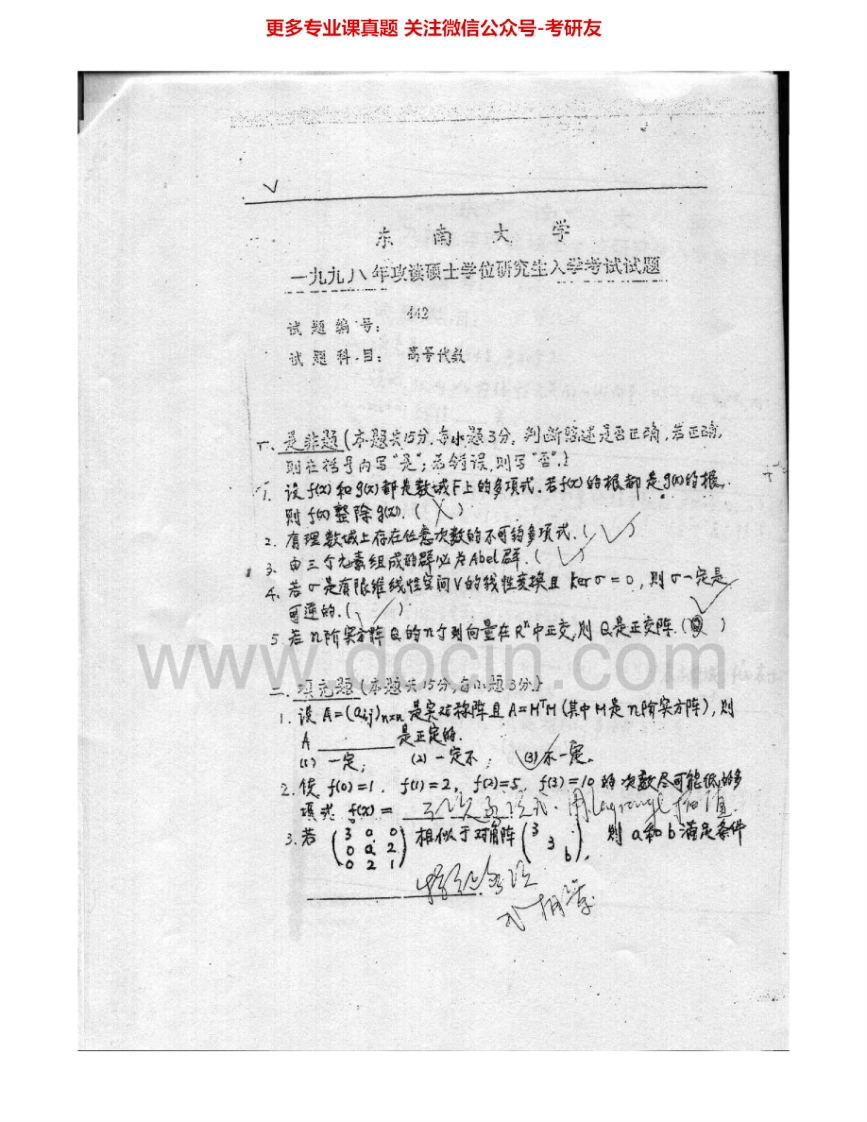 更多专业课真题 关注微信公众号-考研友
东南大学
一九九八年攻读硕士学位研究生入学考试试题
试题编号: 442
试题科目: 高等代数
一、是非题(本题共15分,每小题3分,判断陈述是否正确,若正确,
则在括号内写"是";若错误,则写"否".)
1. 设 f(x) 和 g(x) 都是数域F上的多项式.若f(x)的根都是g(x)的根,
则 f(x) 整除 g(x). ( )
2. 有理数域上存在任意次数的不可约多项式. ( )
3. 由三个元素组成的群必为Abel群. ( )
4. 若σ是有限维线性空间V的线性变换且 Ker σ = 0, 则σ一定是
可逆的. ( )
5. 若n阶实方阵Q的n个列向量在Rⁿ中正交,则Q是正交阵. ( )
www.docin.com
二、填充题(本题共15分,每小题3分)
1. 设 A=(aij)n×n 是实对称阵且 A=MᵀM (其中M是n阶实方阵), 则
A ______ 是正定的.
(1) 一定; (2) 一定不; (3) 不一定.
2. 使 f(0)=1, f(1)=2, f(2)=5, f(3)=10 的次数尽可能低的多
项式 f(x) = 用Lagrange插值.
3. 若 (3 0 0
0 a 2
0 2 1) 相似于对角阵 (3
3
b), 则 a和b满足条件